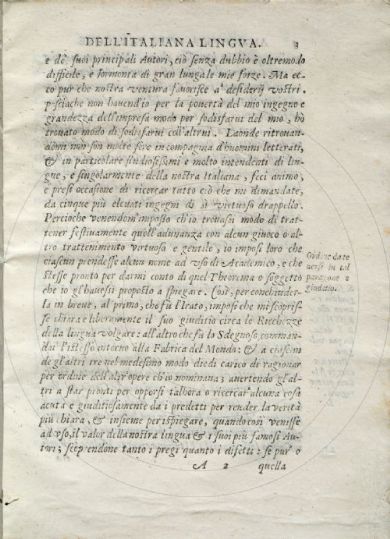 DELL'ITALIANA LINGVA. 3
e de' suoi principali Autori, ciò senza dubbio è oltremodo
difficile, e sormonta di gran lunga le mie forze. Ma ec-
co pur che nostra ventura fauorisce a' desiderij vostri,
poscia che non hauend'io per la pouertà del mio ingegno e
grandezza dell'impresa modo per sodisfarui del mio, hò
trouato modo di sodisfarui coll'altrui. Laonde ritrouan-
domi non son molte sere in compagnia d'huomini letterati,
& in particolare studiosissimi e molto intendenti di lin-
gue, e singolarmente della nostra Italiana, feci animo,
e presi occasione di ricercar tutto ciò che mi dimandate,
da cinque più eleuati ingegni di sì virtuoso drappello.
Percioche venendomi imposto ch'io trouassi modo di trat-
tener festiuamente quell'adunanza con alcun giuoco o al-
tro trattenimento virtuoso e gentile, io imposi loro che
ciascun prendesse alcun nome ad vso di Academico, e che
stesse pronto per darmi conto di quel Theorema o soggetto
che io gl'hauessi proposto a spiegare. Così, per conchiuder-
la in breue, al primo, che fù l'Icato, imposi che mi scoprif-
se chiara e liberamente il suo giuditio circa le Ricchezze
della lingua volgare: all'altro che fù lo Sdegnoso comman-
dai l'istesso intorno alla Fabrica del Mondo: & a ciascun
de gl'altri tre nel medesimo modo diedi carico di ragionar
per ordine dell'altr'opere ch'io nominaua; auertendo gl'al-
tri a star pronti per opporsi talhora o ricercar alcuna cosa
acuta e giuditiosamente da i predetti per render la verità
più chiara, & insieme per ispiegare, quando così venisse
ad vso, il valor della nostra lingua & i suoi più famosi Au-
tori; scoprendone tanto i pregi quanto i difetti: se pur o
A 2 quella